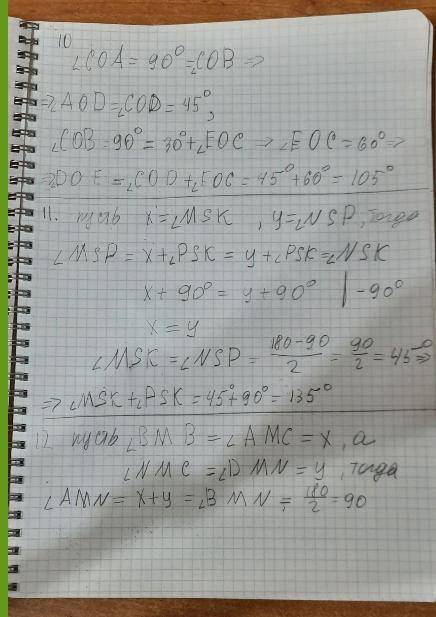 10
∠COA = 90° = ∠COB ⇒
⇒ ∠AOD = ∠COD = 45°,
∠COB = 90° = 30° + ∠EOC ⇒ ∠EOC = 60° ⇒
⇒ DOE = ∠COD + ∠EOC = 45° + 60° = 105°
11. пусть x = ∠MSK , y = ∠NSP, тогда
∠MSP = x + ∠PSK = y + ∠PSK = ∠NSK
x + 90° = y + 90° | -90°
x = y
∠MSK = ∠NSP = (180-90)/2 = 90/2 = 45° ⇒
⇒ ∠MSK + ∠PSK = 45° + 90° = 135°
12 пусть ∠BMB = ∠AMC = x, а
∠NMC = ∠DMN = y, тогда
∠AMN = x + y = ∠BMN = 180/2 = 90